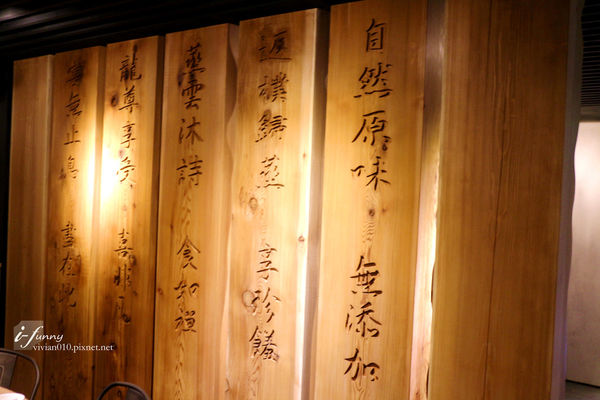 自然原味 無添加
返樸歸蒸 享珍饈
蒸雲沐詩 食知禪
龍尊享受 喜非凡
無止 盡在此
i-funny
vivian010.pixnet.net